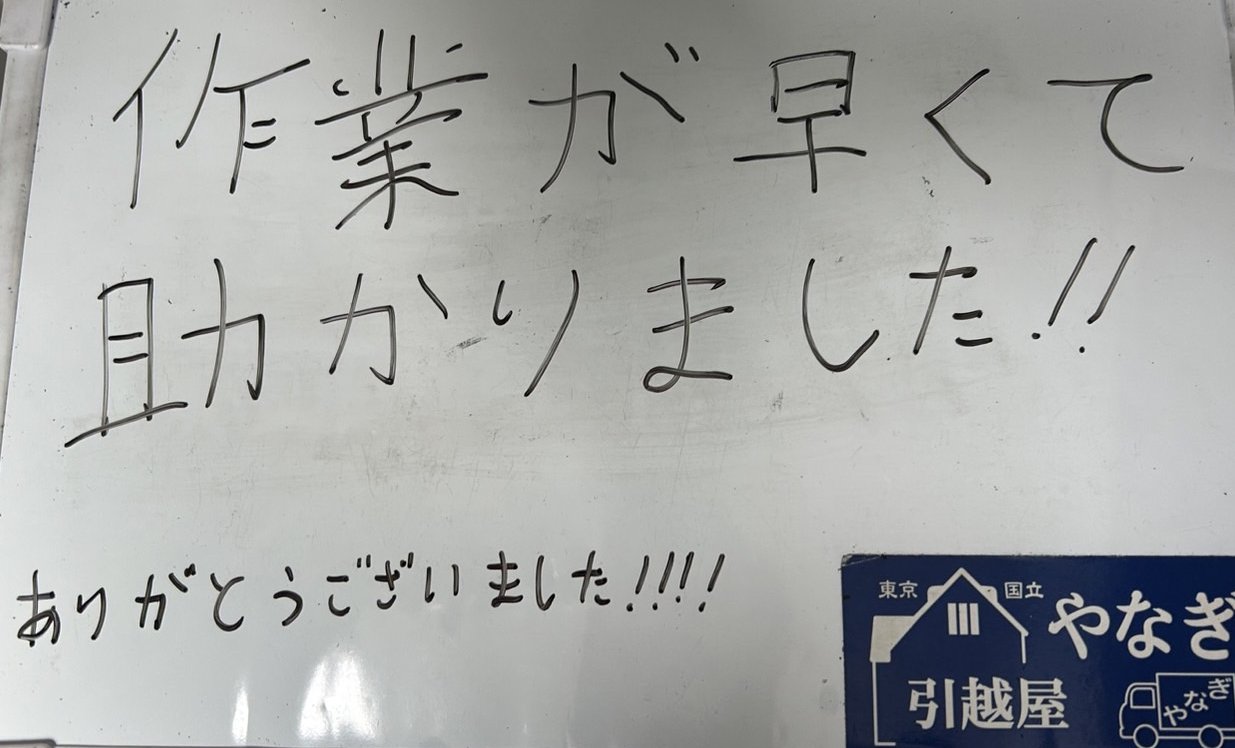 作業が早くて
助かりました!!
ありがとうございました!!!!
東京 国立 やなぎ
引越屋 やなぎ